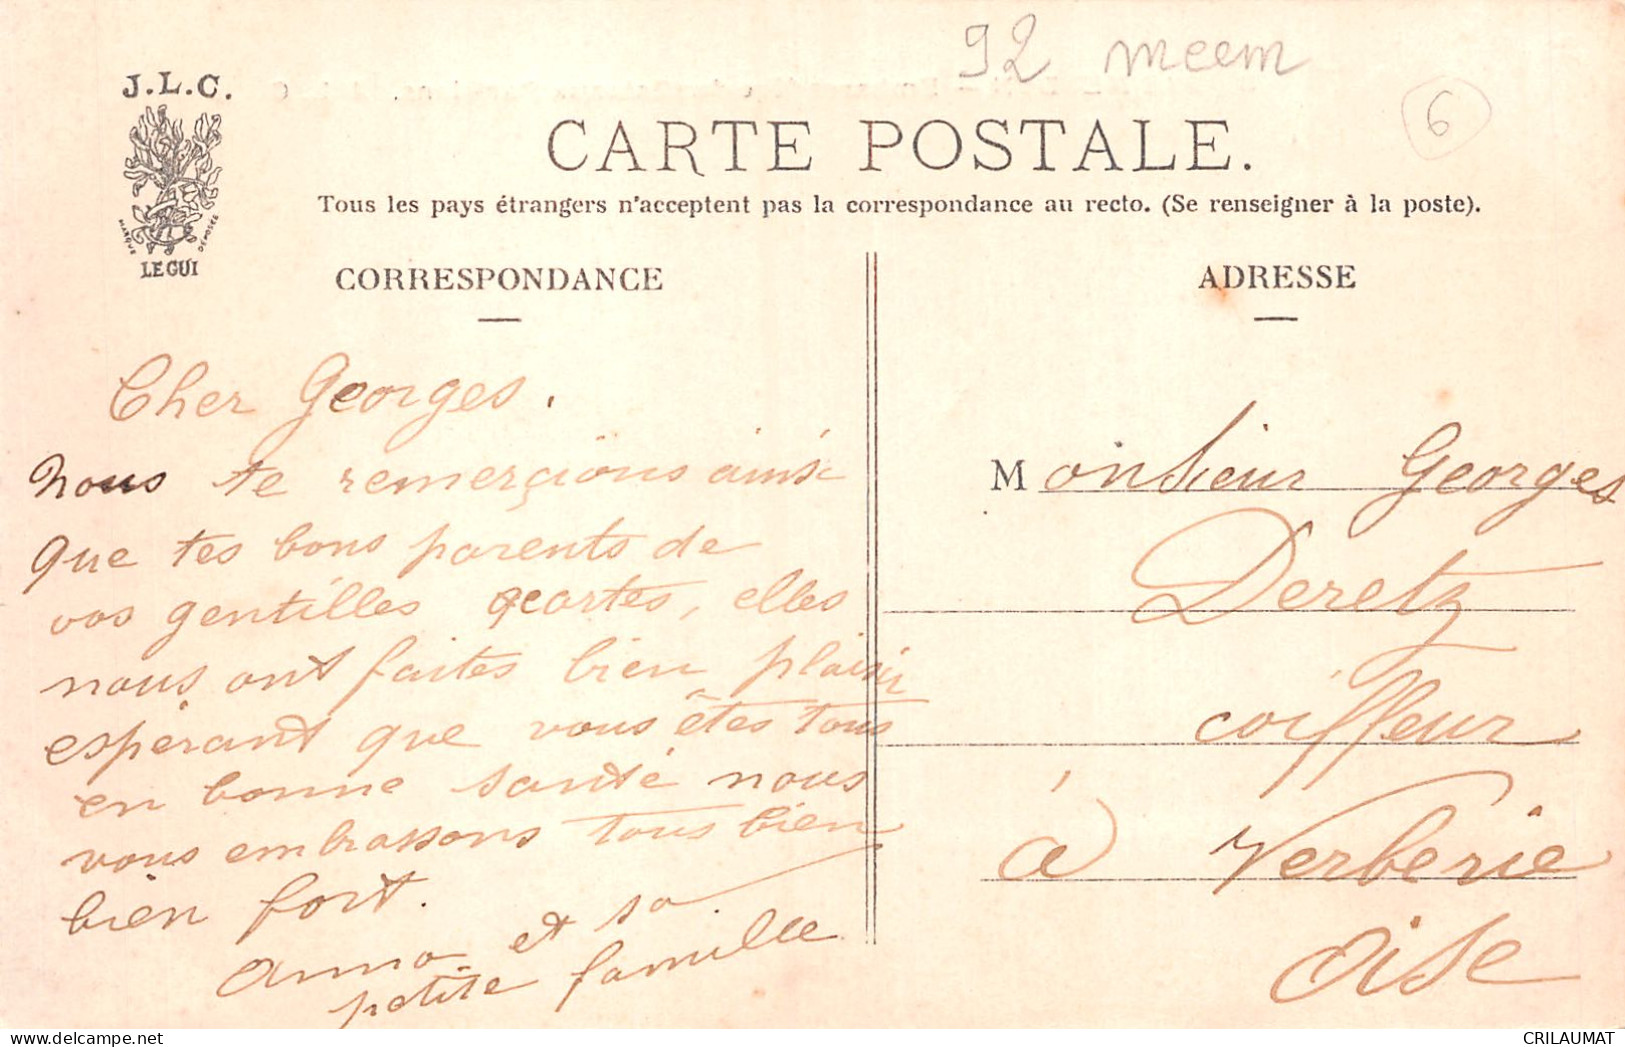 92 meem
6
J.L.C.
MARQUE DÉPOSÉE
LE GUI
CARTE POSTALE.
Tous les pays étrangers n'acceptent pas la correspondance au recto. (Se renseigner à la poste).
CORRESPONDANCE
Cher Georges.
nous te remerçions ainsi
que tes bons parents de
vos gentilles cartes, elles
nous ont faites bien plaisir
espérant que vous êtes tous
en bonne santé nous
vous embrassons tous bien
bien fort.
Anna et sa
petite famille
ADRESSE
Monsieur Georges
Deretz
coiffeur
à Verberie
Oise
CRILAUMAT